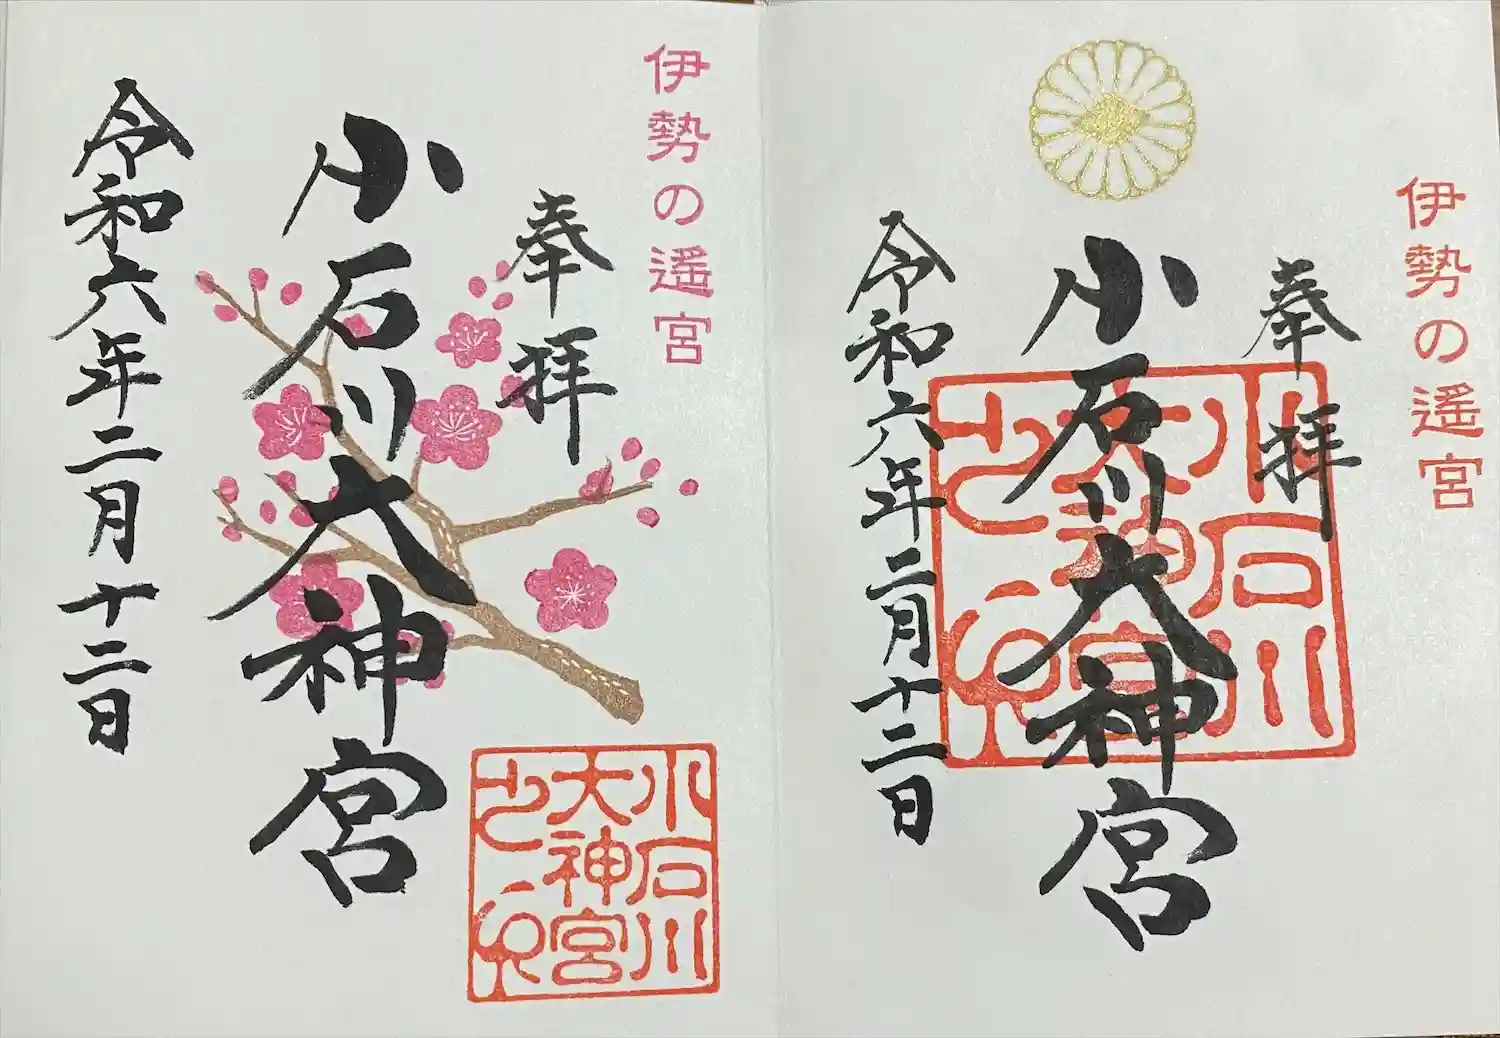 伊勢の遥宮
奉拝
小石川大神宮
令和六年二月十二日
小石川
大神宮
之印
伊勢の遥宮
奉拝
小石川大神宮
令和六年二月十二日
小石川
大神宮
之印